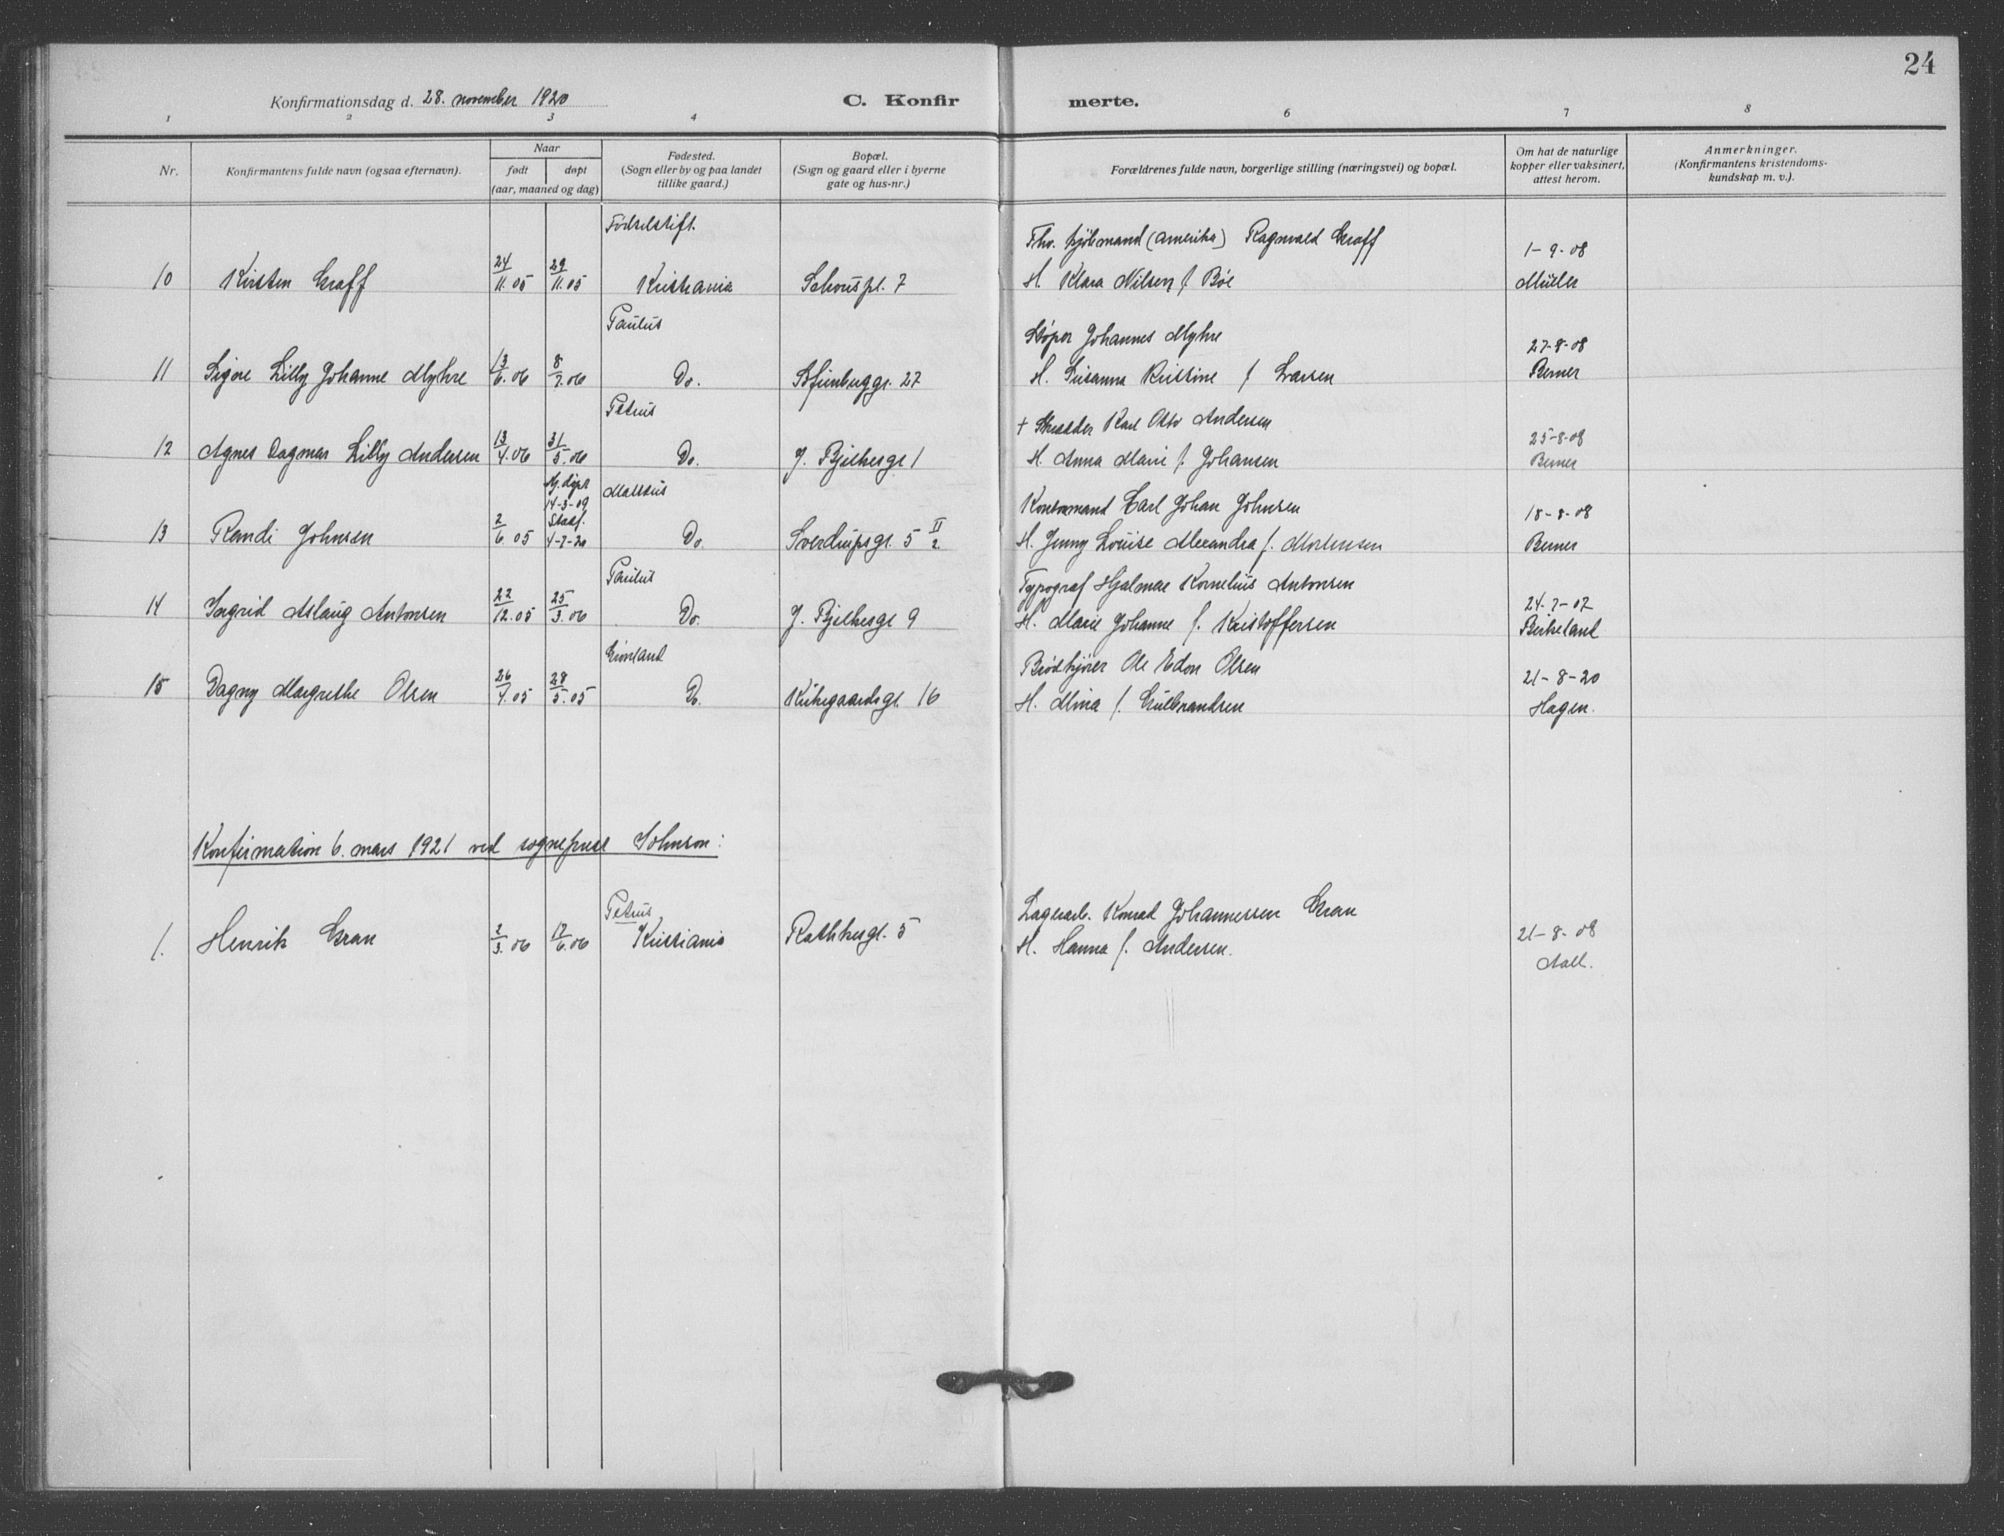 24
Konfirmationsdag d. 28. november 1920
C. Konfir merte.
1 2 3 4 6 7 8
Nr.
Konfirmantens fulde navn (ogsaa efternavn).
Naar
født døpt
(aar, maaned og dag)
Fødested.
(Sogn eller by og paa landet
tillike gaard.)
Bopæl.
(Sogn og gaard eller i byerne
gate og hus-nr.)
Forældrenes fulde navn, borgerlige stilling (næringsvei) og bopæl.
Om hat de naturlige
kopper eller vaksinert,
attest herom.
Anmerkninger.
(Konfirmantens kristendoms-
kundskap m. v.).
Fødselstift. Fhv. (Amerika) Ragnvald Graff
10 Kirsten Graff 24/11.05 29/11.05 Kristiania Schouspl. 7 H. Klara Nilsen f Bøe 1-9-08 Müller
Paulus Støper Johannes Myhre
11 Signe Lilly Johanne Myhre 13/6.06 8/7.06 Do. Sofienberggt. 27 H. Susanna Kristine f Larsen 27-8-08 Berner
Petrus + Skrædder Karl Otto Andersen
12 Agnes Dagmar Lilly Andersen 13/4.06 31/5.06 Do. J. Bjelkesgt 1 H. Anna Marie f. Johansen 25-8-08 Berner
Hj. døpt
14-3-09 Mattæus Kontormand Carl Johan Johnsen
13 Randi Johnsen 2/6.05 Stadf. 4-7-20 Do. Sverdrupsgt. 5 II/2 H. Jenny Louise Alexandra f. Mortensen 18-8-08 Berner
Paulus Typograf Hjalmar Kornelius Antonsen
14 Ingrid Aslaug Antonsen 22/12.05 25/3.06 Do. J. Bjelkesgt 9 H. Marie Johanne f. Kristoffersen 24-7-07 Birkeland
Grønland Brødkjører Ole Edon Olsen
15 Dagny Margrethe Olsen 26/4.05 28/5.05 Do. Kirkegaardsgt. 16 H. Mina f. Gulbrandsen 21-8-20 Hagen.
Konfirmation 6. mars 1921 ved sogneprest Johnson:
Petrus Lagerarb. Konrad Johannessen Gran
1. Henrik Gran 2/3.06 17/6.06 Kristiania Rathkesgt. 5 H. Hanna f. Andersen. 21-8-08
Aall.